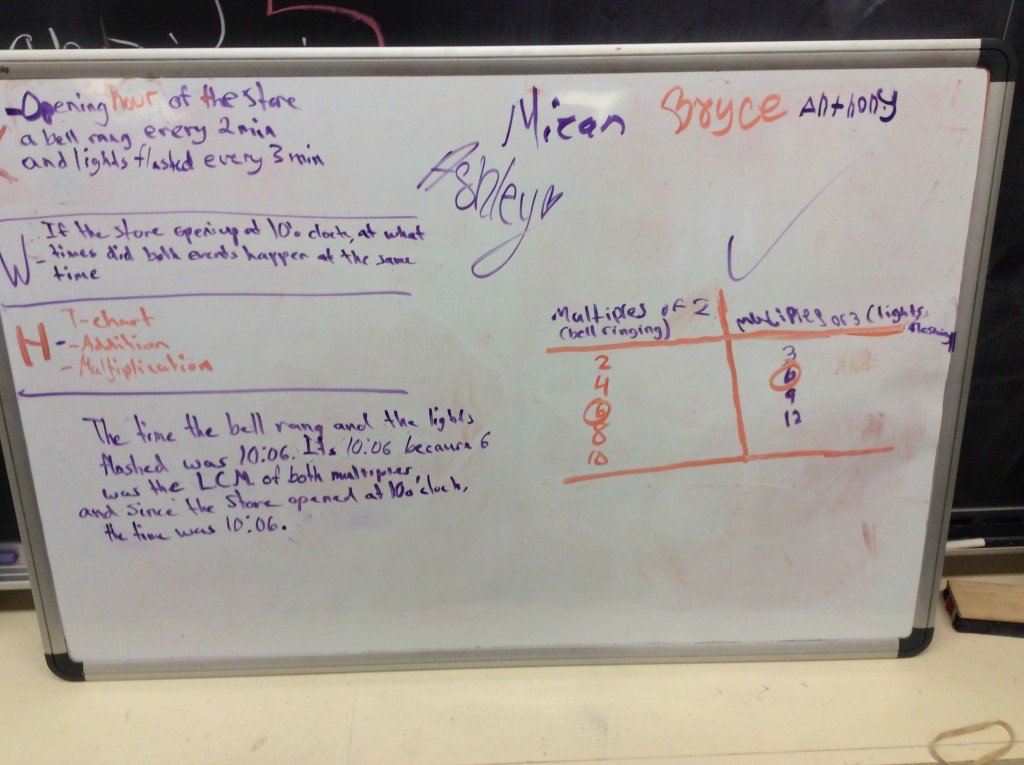 -Opening hour of the store
a bell rang every 2 min
and lights flashed every 3 min
Mizan Bryce Anthony
Ashley
W - If the store opens up at 10 o clock, at what
times did both events happen at the same
time
H - T-chart
- Addition
- Multiplication
The time the bell rang and the lights
flashed was 10:06. Its 10:06 because 6
was the LCM of both multiples,
and since the store opened at 10 o'clock,
the time was 10:06.
Multiples of 2 (bell ringing)
2
4
6
8
10
multiples of 3 (lights flashing)
3
6
9
12